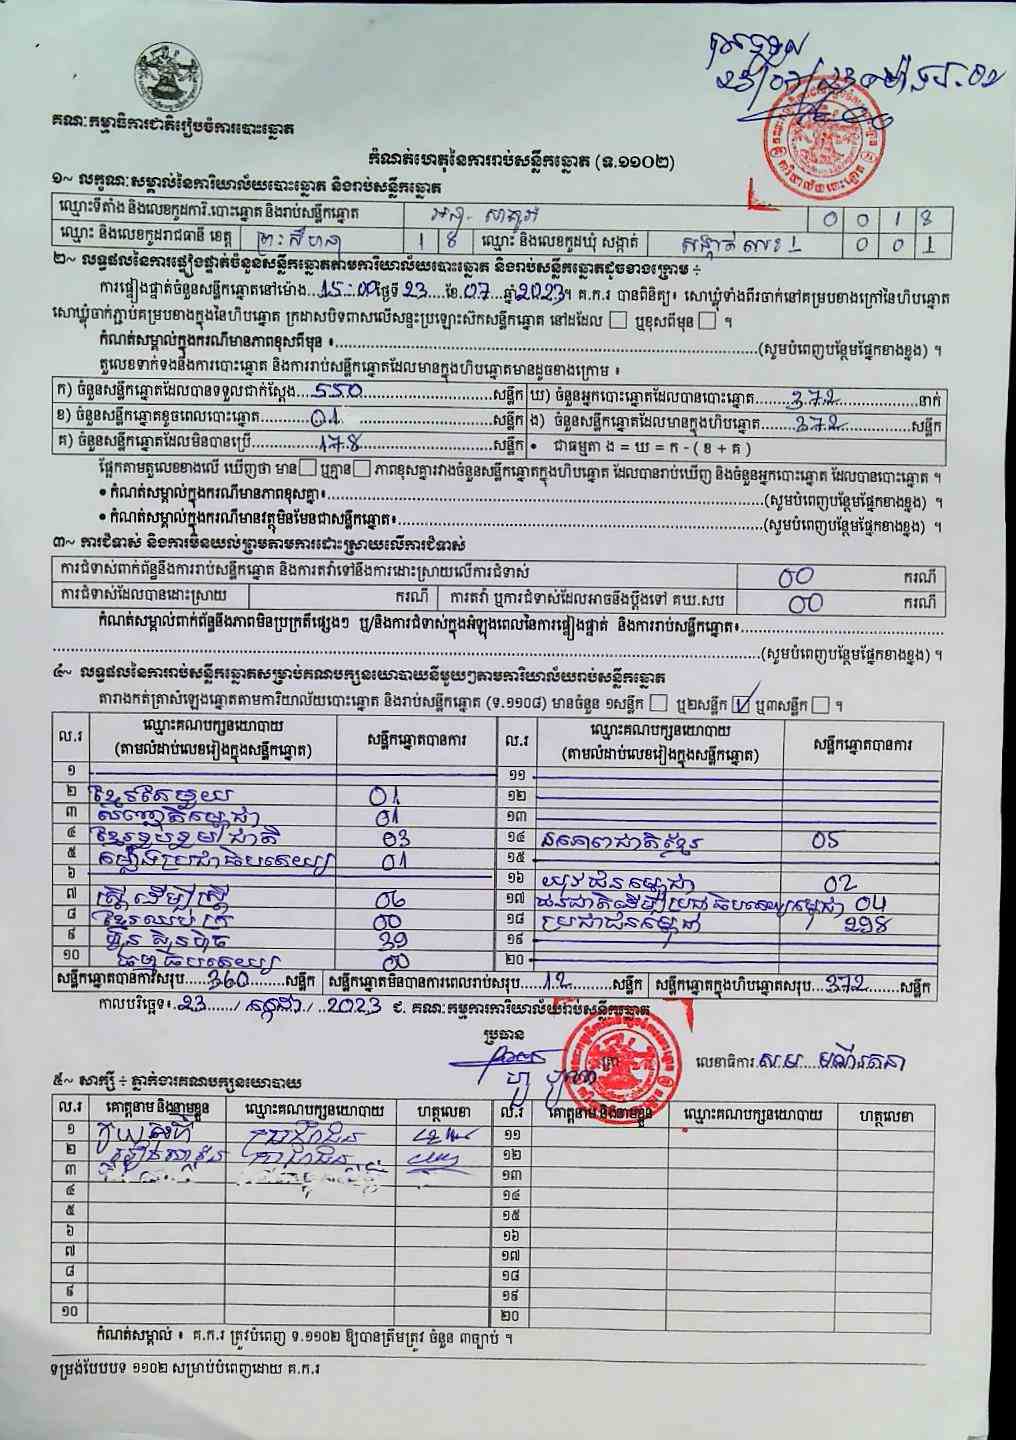 គណៈកម្មាធិការជាតិរៀបចំការបោះឆ្នោត
កំណត់ហេតុនៃការរាប់សន្លឹកឆ្នោត (ទ.១១០២)
១~ លក្ខណៈសម្គាល់នៃការិយាល័យបោះឆ្នោត និងរាប់សន្លឹកឆ្នោត
ឈ្មោះទីតាំង និងលេខកូដការិ.បោះឆ្នោត និងរាប់សន្លឹកឆ្នោត 0 0 1 8
ឈ្មោះ និងលេខកូដរាជធានី ខេត្ត ព្រះសីហនុ 1 8 ឈ្មោះ និងលេខកូដឃុំ សង្កាត់ សង្កាត់លេខ1 0 0 1
២~ លទ្ធផលនៃការផ្ទៀងផ្ទាត់ចំនួនសន្លឹកឆ្នោតតាមការិយាល័យបោះឆ្នោត និងរាប់សន្លឹកឆ្នោតដូចខាងក្រោម ÷
ការផ្ទៀងផ្ទាត់ចំនួនសន្លឹកឆ្នោតនៅម៉ោង...15:00ថ្ងៃទី23....ខែ.07...ឆ្នាំ2023។ គ.ក.រ បានពិនិត្យ៖ សោឃ្លុំទាំងពីរចាក់នៅគម្របខាងក្រៅនៃហិបឆ្នោត
សោឃ្លុំចាក់ភ្ជាប់គម្របខាងក្នុងនៃហិបឆ្នោត ក្រដាសបិទពាសលើសន្ទះប្រឡោះស៊កសន្លឹកឆ្នោត នៅដដែល ☐ ឬខុសពីមុន ☐ ។
កំណត់សម្គាល់ក្នុងករណីមានភាពខុសពីមុន ៖.....(សូមបំពេញបន្ថែមផ្នែកខាងខ្នង) ។
តួលេខទាក់ទងនឹងការបោះឆ្នោត និងការរាប់សន្លឹកឆ្នោតដែលមានក្នុងហិបឆ្នោតមានដូចខាងក្រោម ៖
ក) ចំនួនសន្លឹកឆ្នោតដែលបានទទួលជាក់ស្តែង...550.....សន្លឹក ឃ) ចំនួនអ្នកបោះឆ្នោតដែលបានបោះឆ្នោត.....372.....នាក់
ខ) ចំនួនសន្លឹកឆ្នោតខូចពេលបោះឆ្នោត.....01.....សន្លឹក ង) ចំនួនសន្លឹកឆ្នោតដែលមានក្នុងហិបឆ្នោត.....372.....សន្លឹក
គ) ចំនួនសន្លឹកឆ្នោតដែលមិនបានប្រើ.....178.....សន្លឹក • ជាធម្មតា ង = ឃ = ក - ( ខ + គ )
ផ្អែកតាមតួលេខខាងលើ ឃើញថា មាន☐ ឬគ្មាន☐ ភាពខុសគ្នារវាងចំនួនសន្លឹកឆ្នោតក្នុងហិបឆ្នោត ដែលបានរាប់ឃើញ និងចំនួនអ្នកបោះឆ្នោត ដែលបានបោះឆ្នោត ។
• កំណត់សម្គាល់ក្នុងករណីមានភាពខុសគ្នា៖.....(សូមបំពេញបន្ថែមផ្នែកខាងខ្នង) ។
• កំណត់សម្គាល់ក្នុងករណីមានវត្ថុមិនមែនជាសន្លឹកឆ្នោត៖.....(សូមបំពេញបន្ថែមផ្នែកខាងខ្នង) ។
៣~ ការជំទាស់ និងការមិនយល់ព្រមតាមការដោះស្រាយលើការជំទាស់
ការជំទាស់ពាក់ព័ន្ធនឹងការរាប់សន្លឹកឆ្នោត និងការតវ៉ាទៅនឹងការដោះស្រាយលើការជំទាស់ 00 ករណី
ការជំទាស់ដែលបានដោះស្រាយ ករណី ការតវ៉ា ឬការជំទាស់ដែលអាចនឹងប្តឹងទៅ គឃ.សប 00 ករណី
កំណត់សម្គាល់ពាក់ព័ន្ធនឹងភាពមិនប្រក្រតីផ្សេងៗ ឬ/និងការជំទាស់ក្នុងអំឡុងពេលនៃការផ្ទៀងផ្ទាត់ និងការរាប់សន្លឹកឆ្នោត៖.....
.....(សូមបំពេញបន្ថែមផ្នែកខាងខ្នង) ។
៤~ លទ្ធផលនៃការរាប់សន្លឹកឆ្នោតសម្រាប់គណបក្សនយោបាយនីមួយៗតាមការិយាល័យរាប់សន្លឹកឆ្នោត
តារាងកត់ត្រាសំឡេងឆ្នោតតាមការិយាល័យបោះឆ្នោត និងរាប់សន្លឹកឆ្នោត (ទ.១១០៨) មានចំនួន ១សន្លឹក ☐ ឬ២សន្លឹក ☑ ឬ៣សន្លឹក ☐ ។
ល.រ ឈ្មោះគណបក្សនយោបាយ (តាមលំដាប់លេខរៀងក្នុងសន្លឹកឆ្នោត) សន្លឹកឆ្នោតបានការ ល.រ ឈ្មោះគណបក្សនយោបាយ (តាមលំដាប់លេខរៀងក្នុងសន្លឹកឆ្នោត) សន្លឹកឆ្នោតបានការ
១ ១១
២ ខ្មែរតែមួយ 01 ១២
៣ សញ្ជាតិកម្ពុជា 01 ១៣
៤ ខ្មែររួបរួមជាតិ 03 ១៤ ឯកភាពជាតិខ្មែរ 05
៥ កម្លាំងប្រជាធិបតេយ្យ 01 ១៥
៦ ១៦ យុវជនកម្ពុជា 02
៧ ស្ត្រីដើម្បីស្ត្រី 06 ១៧ ជនជាតិដើមប្រជាធិបតេយ្យកម្ពុជា 04
៨ ខ្មែរឈប់ក្រ 00 ១៨ ប្រជាជនកម្ពុជា 298
៩ ហ៊្វុនស៊ិនប៉ិច 39 ១៩
១០ ធម្មាធិបតេយ្យ 00 ២០
សន្លឹកឆ្នោតបានការសរុប...360.....សន្លឹក សន្លឹកឆ្នោតមិនបានការពេលរាប់សរុប...12.....សន្លឹក សន្លឹកឆ្នោតក្នុងហិបឆ្នោតសរុប...372.....សន្លឹក
កាលបរិច្ឆេទ៖.23...../កក្កដា/..2023 ជ. គណៈកម្មការការិយាល័យរាប់សន្លឹកឆ្នោត
ប្រធាន
លេខាធិការ
៥~ សាក្សី ÷ ភ្នាក់ងារគណបក្សនយោបាយ
ល.រ គោត្តនាម និងនាមខ្លួន ឈ្មោះគណបក្សនយោបាយ ហត្ថលេខា ល.រ គោត្តនាម និងនាមខ្លួន ឈ្មោះគណបក្សនយោបាយ ហត្ថលេខា
១ ប្រជាជន ១១
២ ប្រជាជន ១២
៣ ១៣
៤ ១៤
៥ ១៥
៦ ១៦
៧ ១៧
៨ ១៨
៩ ១៩
១០ ២០
កំណត់សម្គាល់ ៖ គ.ក.រ ត្រូវបំពេញ ទ.១១០២ ឱ្យបានត្រឹមត្រូវ ចំនួន ៣ច្បាប់ ។
ទម្រង់បែបបទ ១១០២ សម្រាប់បំពេញដោយ គ.ក.រ